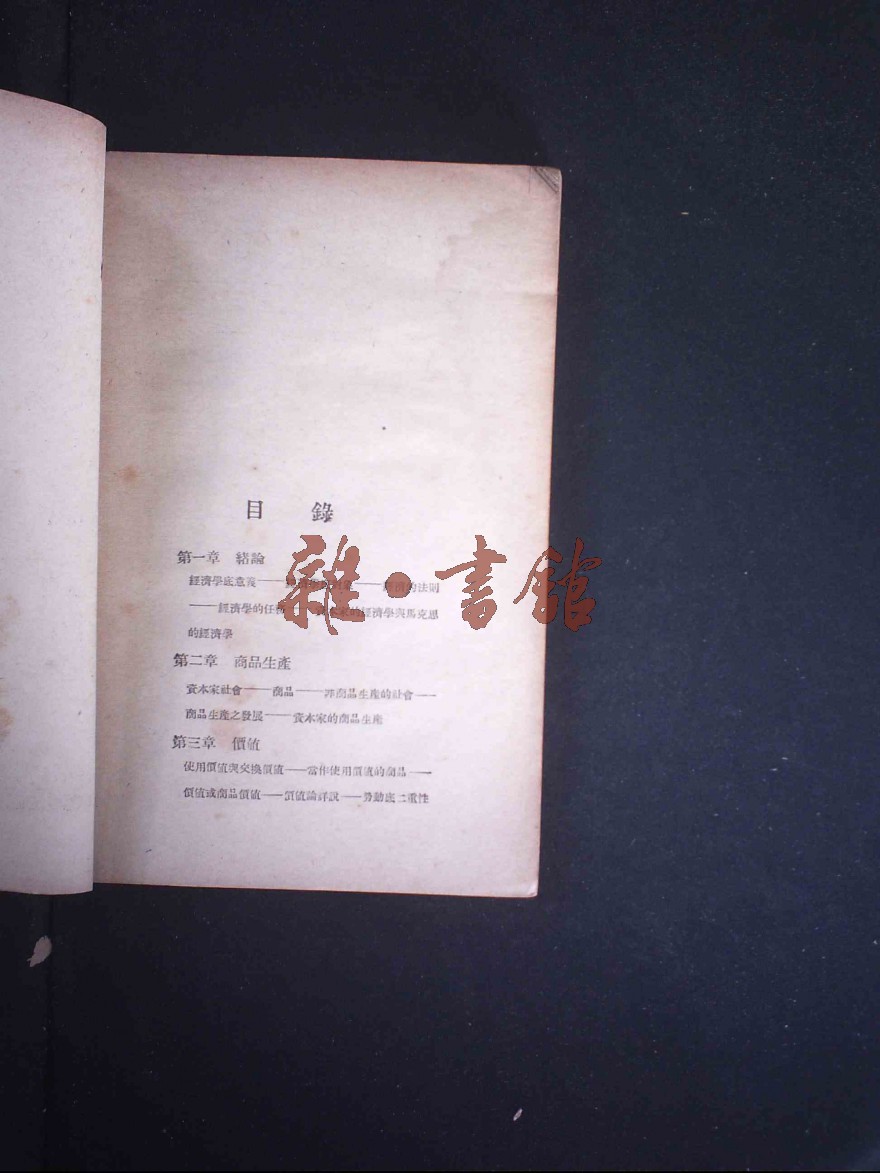 目 錄
第一章 緒論
經濟學底意義——經濟學的對象——經濟的法則
——經濟學的任務——資本家的經濟學與馬克思
的經濟學
第二章 商品生產
資本家社會——商品——非商品生產的社會——
商品生產之發展——資本家的商品生產
第三章 價值
使用價值與交換價值——當作使用價值的商品——
價值或商品價值——價值論詳說——勞動底二重性
雜·書館